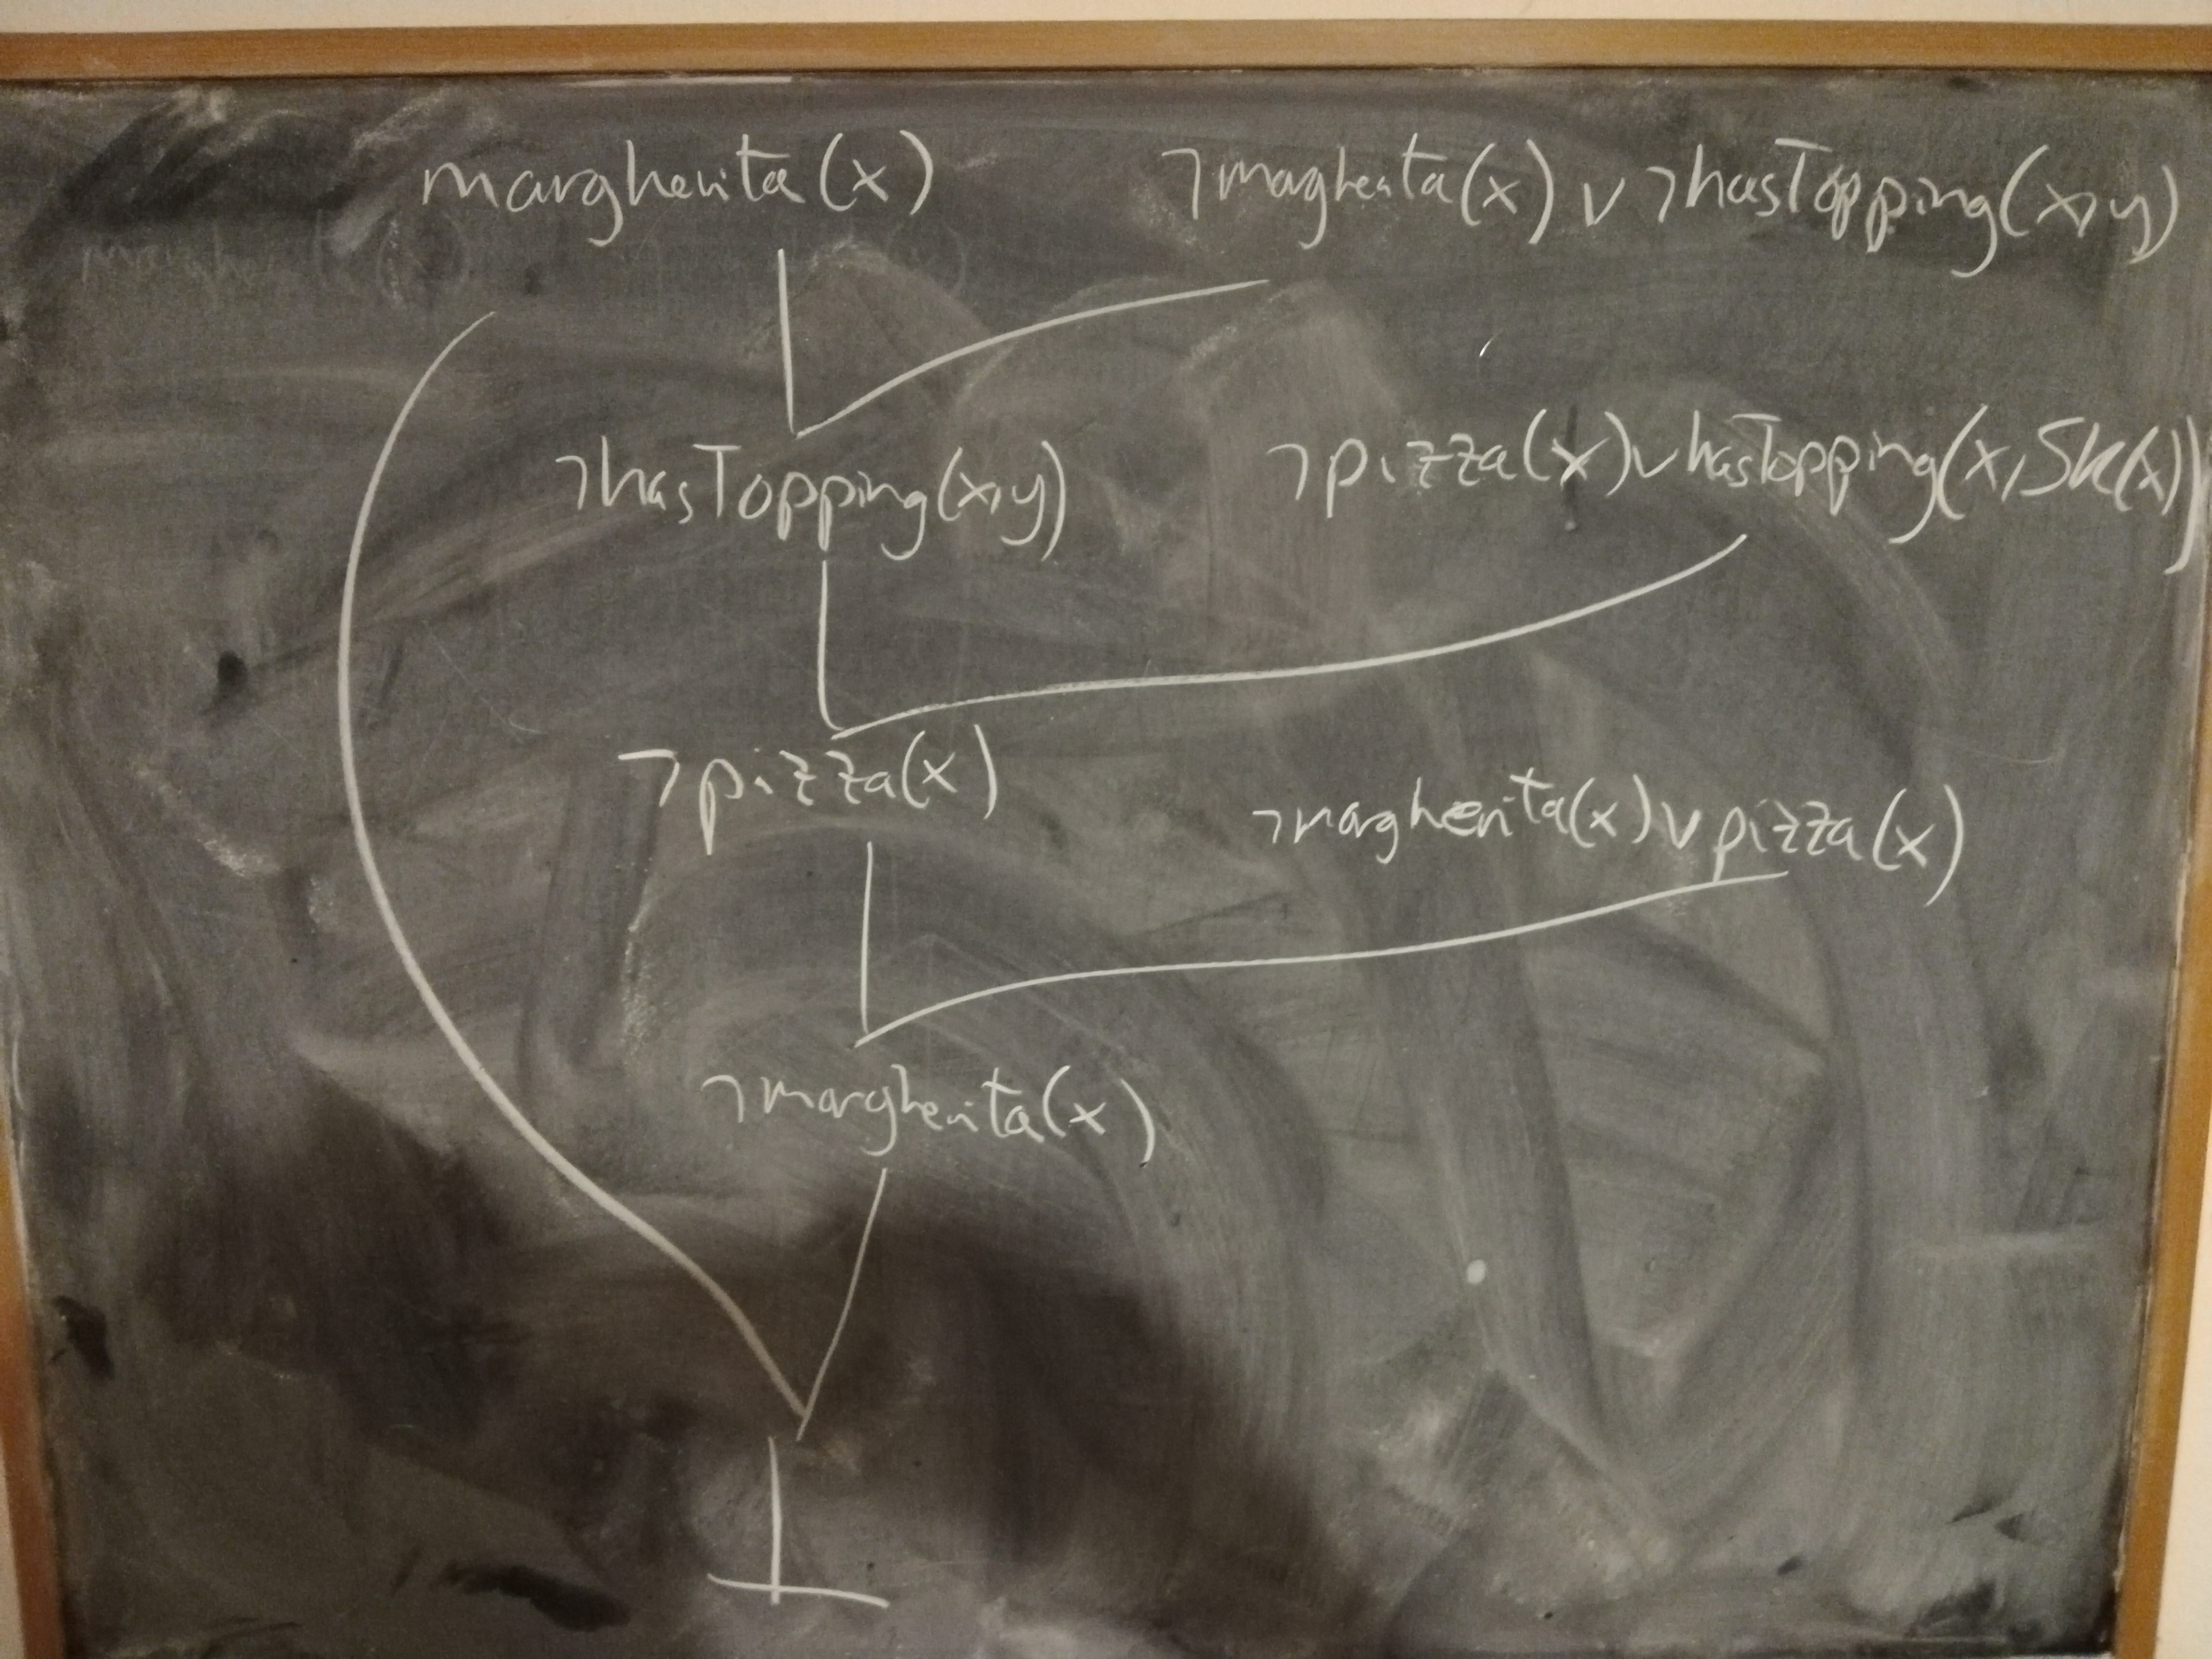 margherita(x) ¬magherita(x) ∨ ¬hasTopping(x,y)
¬hasTopping(x,y) ¬pizza(x) ∨ hasTopping(x,Sk(x))
¬pizza(x) ¬margherita(x) ∨ pizza(x)
¬margherita(x)
⊥